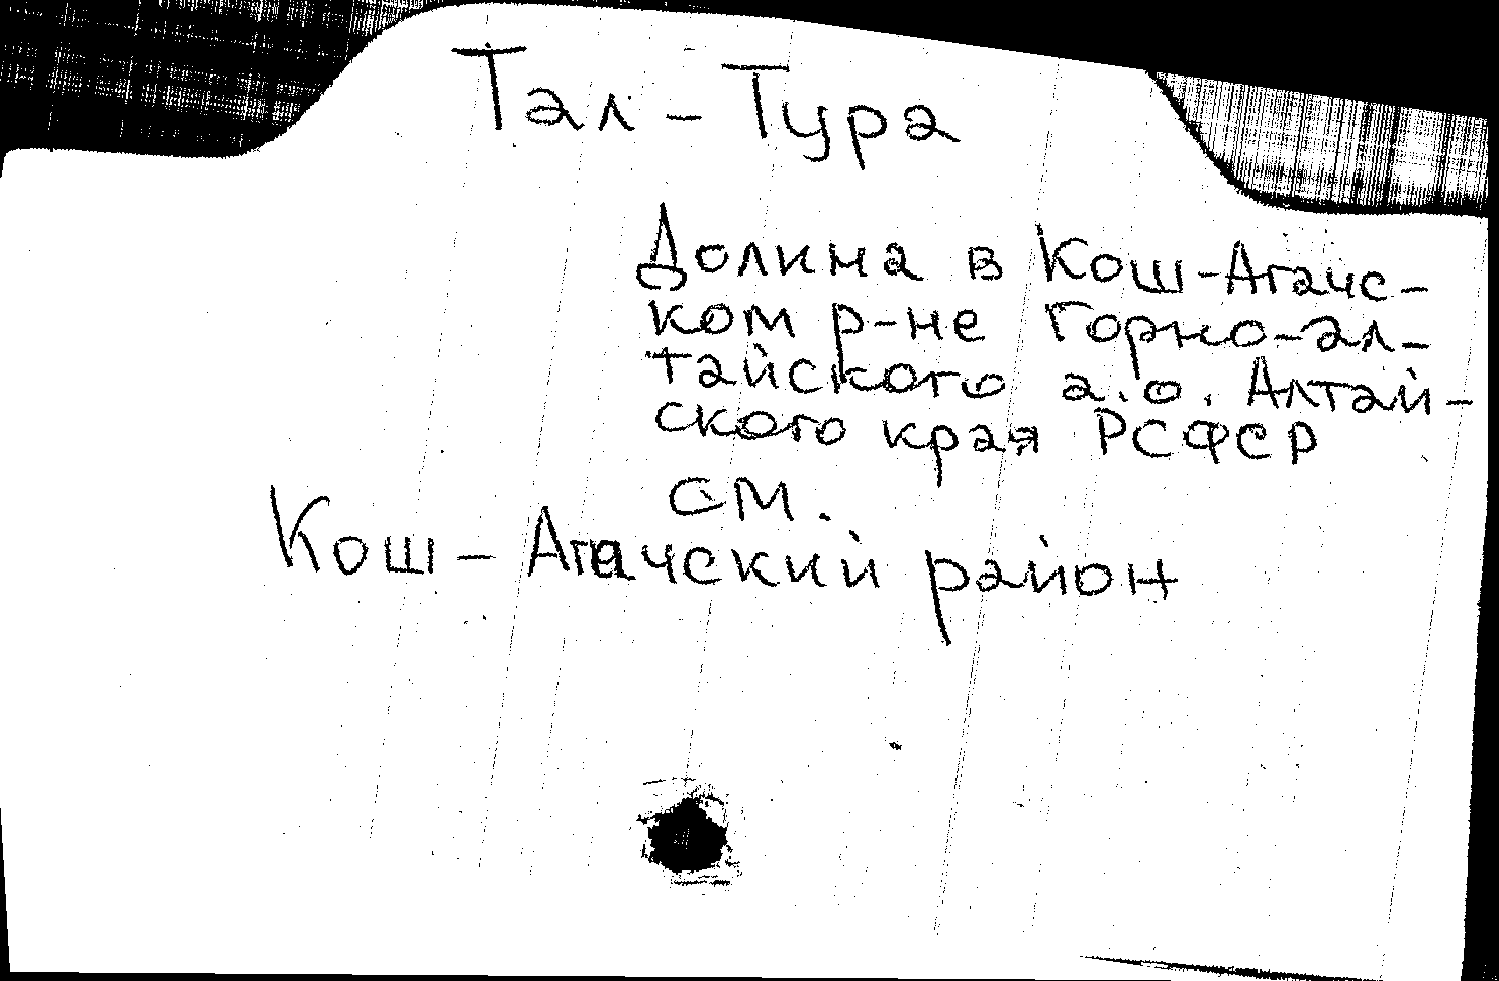 Тал-Тура
Долина в Кош-Агачс-
ком р-не Горно-ал-
тайского а.о. Алтай-
ского края РСФСР
см.
Кош-Агачский район